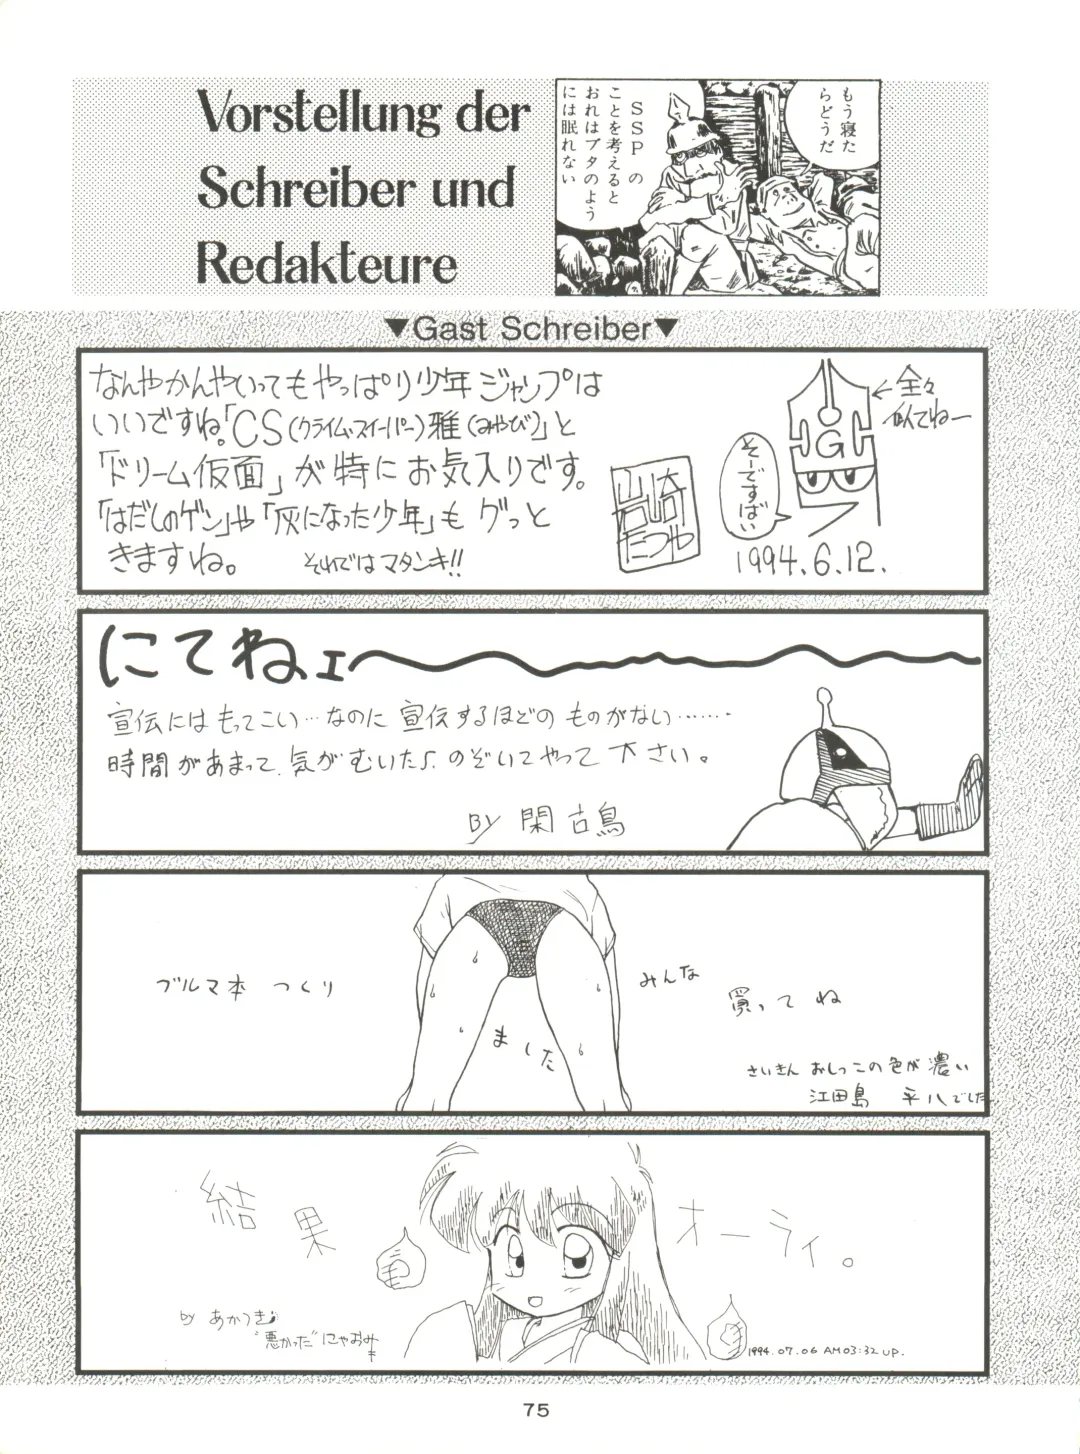 Vorstellung der
Schreiber und
Redakteure
もう寝た
らどうだ
SSPの
ことを考えると
おれはブタのよう
には眠れない
▼Gast Schreiber▼
なんやかんやいってもやっぱり少年ジャンプは
いいですね。「CS(クライム・スイーパー)雅(みやび)」と
「ドリーム仮面」が特にお気入りです。
「はだしのゲン」や「灰になった少年」もグっと
きますね。 それではマタンキ!!
山崎
たつや
そーですばい
←全々
似てねー
JGC
1994.6.12.
にてねェ〜
宣伝にはもってこい…なのに宣伝するほどのものがない……・
時間があまって、気がむいたら、のぞいてやって下さい。
BY 閑古鳥
ブルマ本 つくり
ました
みんな
買ってね
さいきん おしっこの色が濃い
江田島 平八でした
結果
オーライ。
by あかつき
"悪かった"にゃおみ
1994.07.06 AM03:32 UP.
75